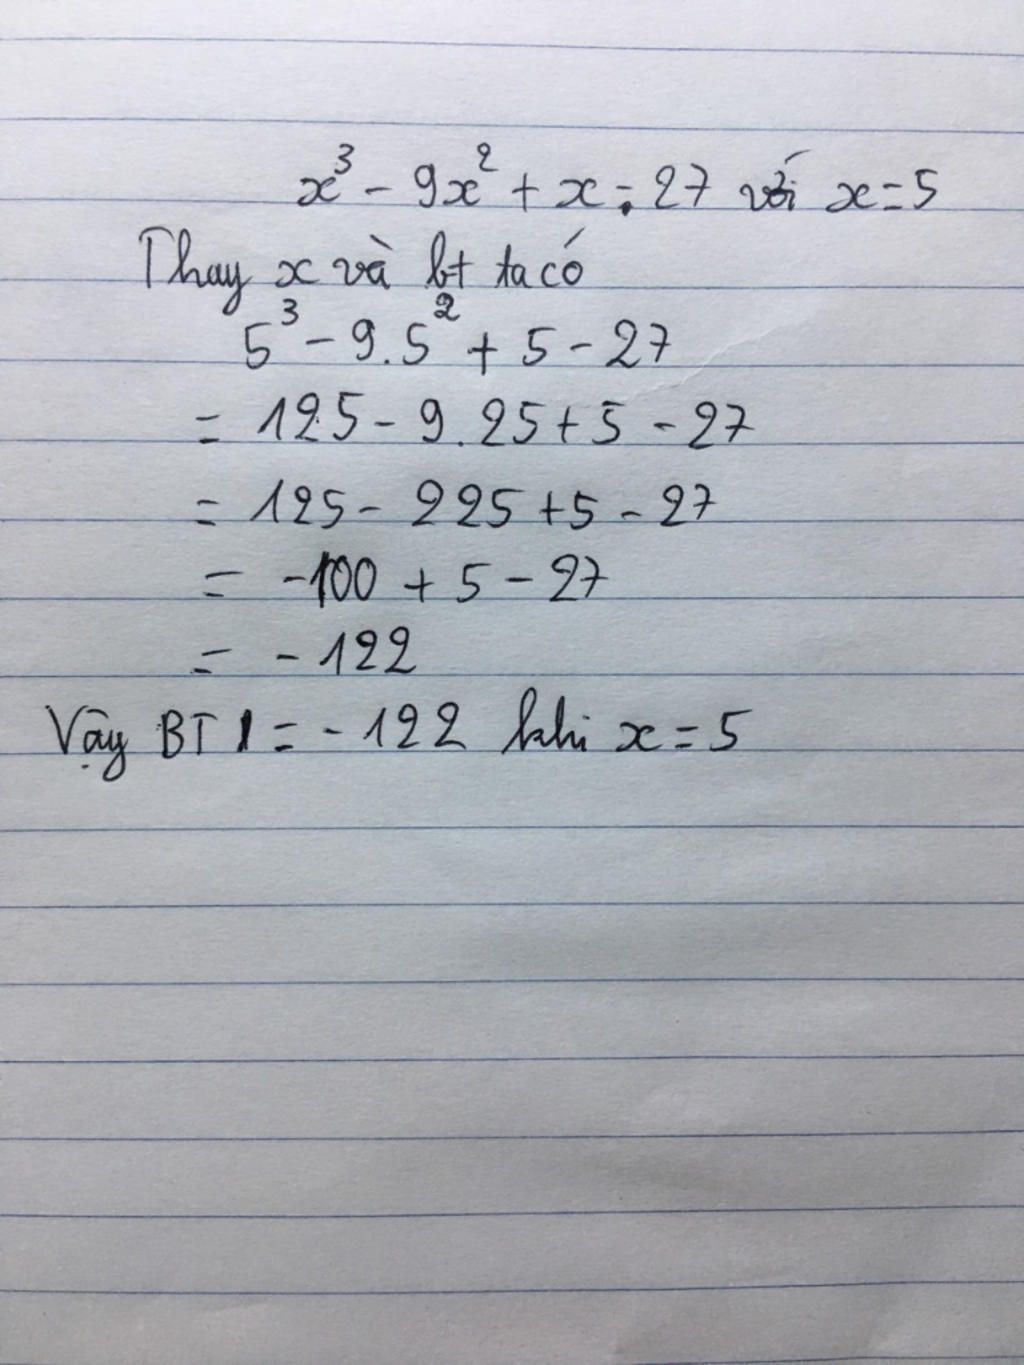 x³ - 9x² + x . 27 với x = 5
Thay x và bt ta có
5³ - 9.5² + 5 - 27
= 125 - 9.25 + 5 - 27
= 125 - 225 + 5 - 27
= -100 + 5 - 27
= -122
Vậy BT 1 = -122 khi x = 5